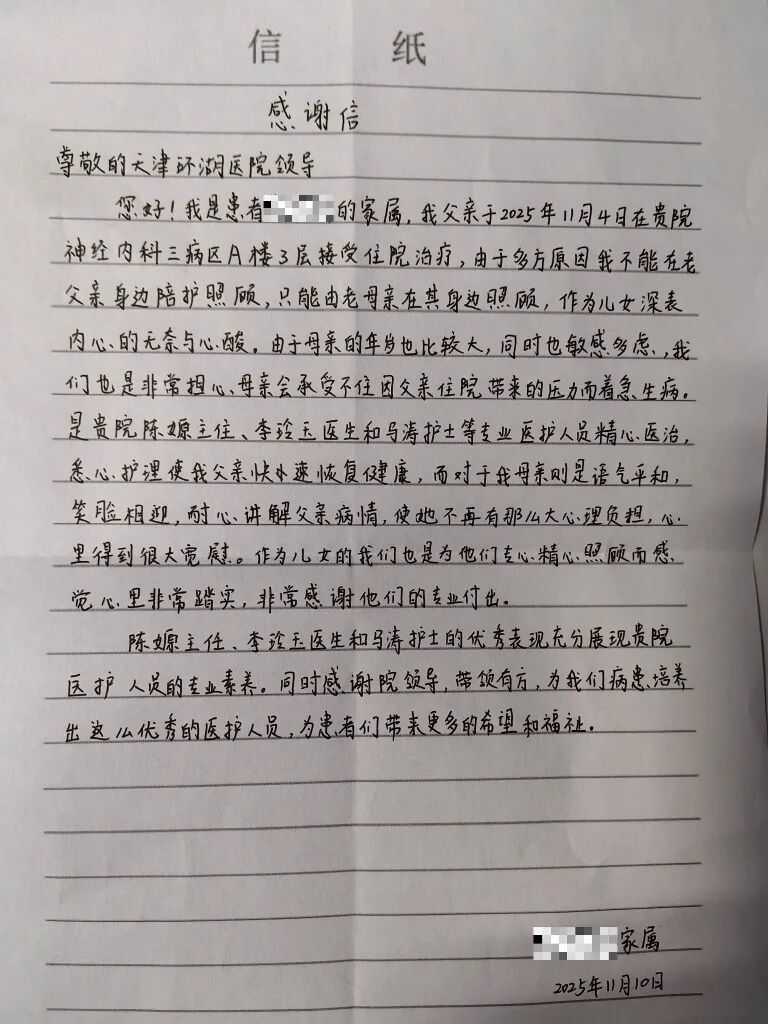 信 纸
感谢信
尊敬的天津环湖医院领导
您好!我是患者的家属,我父亲于2025年11月4日在贵院
神经内科三病区A楼3层接受住院治疗,由于多方原因我不能在老
父亲身边陪护照顾,只能由老母亲在其身边照顾,作为儿女深表
内心的无奈与心酸。由于母亲的年岁也比较大,同时也敏感多虑,我
们也是非常担心母亲会承受不住因父亲住院带来的压力而着急生病。
是贵院陈嫄主任、李玲玉医生和马涛护士等专业医护人员精心医治,
悉心护理使我父亲快速恢复健康,而对于我母亲则是语气平和,
笑脸相迎,耐心讲解父亲病情,使她不再有那么大心理负担,心
里得到很大宽慰。作为儿女的我们也是为他们专心精心照顾而感
觉心里非常踏实,非常感谢他们的专业付出。
陈嫄主任、李玲玉医生和马涛护士的优秀表现充分展现贵院
医护人员的专业素养。同时感谢院领导,带领有方,为我们病患培养
出这么优秀的医护人员,为患者们带来更多的希望和福祉。
家属
2025年11月10日